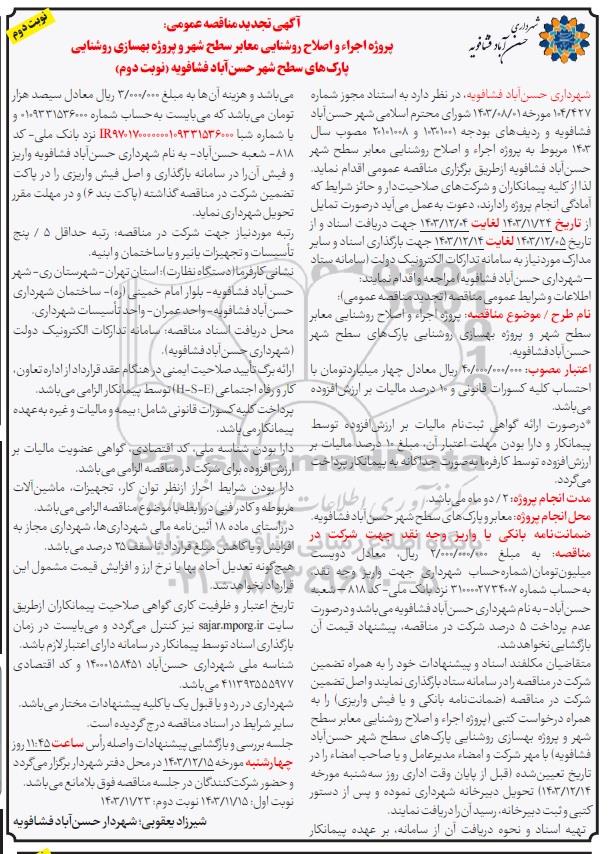 نوبت دوم
شهرداری
حسن‌آباد فشافویه
آگهی تجدید مناقصه عمومی:
پروژه اجراء و اصلاح روشنایی معابر سطح شهر و پروژه بهسازی روشنایی
پارک‌های سطح شهر حسن‌آباد فشافویه (نوبت دوم)
شهرداری حسن‌آباد فشافویه، در نظر دارد به استناد مجوز شماره
۱۰۴/۴۲۷ مورخه ۱۴۰۳/۰۸/۰۱ شورای محترم اسلامی شهر حسن‌آباد
فشافویه و ردیف‌های بودجه ۱۰۳۱۰۰۱ و ۲۰۱۰۱۰۰۸ مصوب سال
۱۴۰۳ مربوط به پروژه اجراء و اصلاح روشنایی معابر سطح شهر
حسن‌آباد فشافویه ازطریق برگزاری مناقصه عمومی اقدام نماید.
لذا از کلیه پیمانکاران و شرکت‌های صلاحیت‌دار و حائز شرایط که
آمادگی انجام پروژه را دارند، دعوت به‌عمل می‌آید درصورت تمایل
از تاریخ ۱۴۰۳/۱۱/۲۴ لغایت ۱۴۰۳/۱۲/۰۴ جهت دریافت اسناد و از
تاریخ ۱۴۰۳/۱۲/۰۵ لغایت ۱۴۰۳/۱۲/۱۴ جهت بارگذاری اسناد و سایر
مدارک موردنیاز به سامانه تدارکات الکترونیک دولت (سامانه ستاد
–شهرداری حسن‌آباد فشافویه) مراجعه و اقدام نمایند:
اطلاعات و شرایط عمومی مناقصه (تجدید مناقصه عمومی):
نام طرح / موضوع مناقصه: پروژه اجراء و اصلاح روشنایی معابر
سطح شهر و پروژه بهسازی روشنایی پارک‌های سطح شهر
حسن‌آباد فشافویه.
اعتبار مصوب: ۴۰/۰۰۰/۰۰۰/۰۰۰ ریال معادل چهار میلیاردتومان با
احتساب کلیه کسورات قانونی و ۱۰ درصد مالیات بر ارزش‌افزوده
می‌باشد.
*درصورت ارائه گواهی ثبت‌نام مالیات بر ارزش‌افزوده توسط
پیمانکار و دارا بودن مهلت اعتبار آن، مبلغ ۱۰ درصد مالیات بر
ارزش‌افزوده توسط کارفرما به‌صورت جداگانه به پیمانکار پرداخت
می‌گردد.
مدت انجام پروژه: ۲ / دو ماه می‌باشد.
محل انجام پروژه: معابر و پارک‌های سطح شهر حسن‌آباد فشافویه.
ضمانت‌نامه بانکی یا واریز وجه نقد جهت شرکت در
مناقصه: به مبلغ ۲/۰۰۰/۰۰۰/۰۰۰ ریال، معادل دویست
میلیون‌تومان (شماره‌حساب شهرداری جهت واریز وجه نقد:
به حساب شماره ۳۱۰۰۰۰۲۷۳۴۰۰۷ نزد بانک ملی- کد ۸۱۸ – شعبه
حسن‌آباد- به نام شهرداری حسن‌آباد فشافویه می‌باشد و درصورت
عدم پرداخت ۵ درصد شرکت در مناقصه، پیشنهاد قیمت آن
بازگشایی نخواهد شد.
متقاضیان مکلفند اسناد و پیشنهادات خود را به همراه تضمین
شرکت در مناقصه را در سامانه ستاد بارگذاری نمایند و اصل تضمین
شرکت در مناقصه (ضمانت‌نامه بانکی و یا فیش واریزی) را به
همراه درخواست کتبی (پروژه اجراء و اصلاح روشنایی معابر سطح
شهر و پروژه بهسازی روشنایی پارک‌های سطح شهر حسن‌آباد
فشافویه) با مهر شرکت و امضاء مدیرعامل و یا صاحب امضاء را در
تاریخ تعیین‌شده (قبل از پایان وقت اداری روز سه‌شنبه مورخه
۱۴۰۳/۱۲/۱۴) تحویل دبیرخانه شهرداری نموده و پس از دستور
کتبی و ثبت دبیرخانه، رسید آن را دریافت نمایند.
تهیه اسناد و نحوه دریافت آن از سامانه، بر عهده پیمانکار
می‌باشد و هزینه آن‌ها به مبلغ ۳/۰۰۰/۰۰۰ ریال معادل سیصد هزار
تومان می‌باشد که می‌بایست به‌حساب شماره ۰۱۰۹۳۳۱۵۳۶۰۰۰ و
یا شماره شبا IR۹۷۰۱۷۰۰۰۰۰۰۰۱۰۹۳۳۱۵۳۶۰۰۰ نزد بانک ملی- کد
۸۱۸- شعبه حسن‌آباد- به نام شهرداری حسن‌آباد فشافویه واریز
و فیش آن‌را در سامانه بارگذاری و اصل فیش واریزی را در پاکت
تضمین شرکت در مناقصه گذاشته (پاکت بند ۶) و در مهلت مقرر
تحویل شهرداری نماید.
رتبه موردنیاز جهت شرکت در مناقصه: رتبه حداقل ۵ / پنج
تأسیسات و تجهیزات یا نیر و یا ساختمان و ابنیه.
نشانی کارفرما (دستگاه نظارت): استان تهران- شهرستان ری- شهر
حسن‌آباد فشافویه- بلوار امام خمینی (ره)- ساختمان شهرداری
حسن‌آباد فشافویه- واحد عمران- واحد تأسیسات شهرداری.
محل دریافت اسناد مناقصه: سامانه تدارکات الکترونیک دولت
(شهرداری حسن‌آباد فشافویه).
ارائه برگ تأیید صلاحیت ایمنی در هنگام عقد قرارداد از اداره تعاون،
کار و رفاه اجتماعی (H-S-E) توسط پیمانکار الزامی می‌باشد.
پرداخت کلیه کسورات قانونی شامل: بیمه و مالیات و غیره به عهده
پیمانکار می‌باشد.
دارا بودن شناسه ملی، کد اقتصادی، گواهی عضویت مالیات بر
ارزش‌افزوده برای شرکت در مناقصه الزامی می‌باشد.
دارا بودن شرایط احراز ازنظر توان کار، تجهیزات، ماشین‌آلات
مربوطه و کادر فنی دررابطه با موضوع مناقصه الزامی می‌باشد.
درراستای ماده ۱۸ آئین‌نامه مالی شهرداری‌ها، شهرداری مجاز به
افزایش و یا کاهش مبلغ قرارداد تا سقف ۲۵ درصد می‌باشد.
هیچ‌گونه تعدیل آحاد بها یا نرخ ارز و افزایش قیمت مشمول این
قرارداد نخواهد شد.
تاریخ اعتبار و ظرفیت کاری گواهی صلاحیت پیمانکاران ازطریق
سایت sajar.mporg.ir نیز کنترل می‌گردد و می‌بایست در زمان
بارگذاری اسناد توسط پیمانکار در سامانه دارای اعتبار لازم باشد.
شناسه ملی شهرداری حسن‌آباد ۱۴۰۰۰۱۵۸۴۵۱ و کد اقتصادی
۴۱۱۳۹۳۵۵۵۹۷۷ می‌باشد.
شهرداری در رد و یا قبول یک یا کلیه پیشنهادات مختار می‌باشد.
سایر شرایط در اسناد مناقصه درج گردیده است.
جلسه بررسی و بازگشایی پیشنهادات واصله رأس ساعت ۱۱:۴۵ روز
چهارشنبه مورخه ۱۴۰۳/۱۲/۱۵ در محل دفتر شهردار برگزار می‌گردد
و حضور شرکت‌کنندگان در جلسه مناقصه فوق بلامانع می‌باشد.
نوبت اول: ۱۴۰۳/۱۱/۱۵ نوبت دوم: ۱۴۰۳/۱۱/۲۳
شیرزاد یعقوبی؛ شهردار حسن‌آباد فشافویه